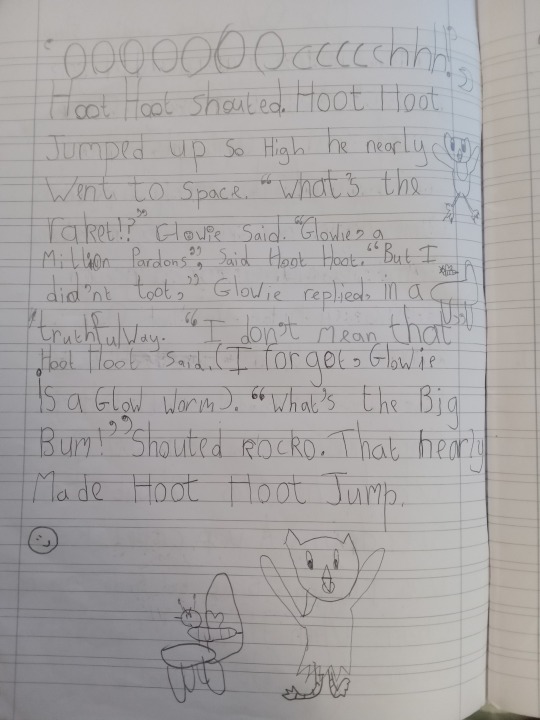 "OOOOOOOccccchhh!"
Hoot Hoot shouted. Hoot Hoot
Jumped up So High he nearly
Went to Space. "What's the
raket!?" Glowie Said. "Glowie, a
Million Pardons", Said Hoot Hoot. "But I
did'nt toot," Glowie replied, in a
truthful Way. "I don't mean that"
Hoot Hoot Said. (I forgot, Glowie
is a Glow Worm). "What's the Big
Bum!" Shouted Rocko. That nearly
Made Hoot Hoot Jump.